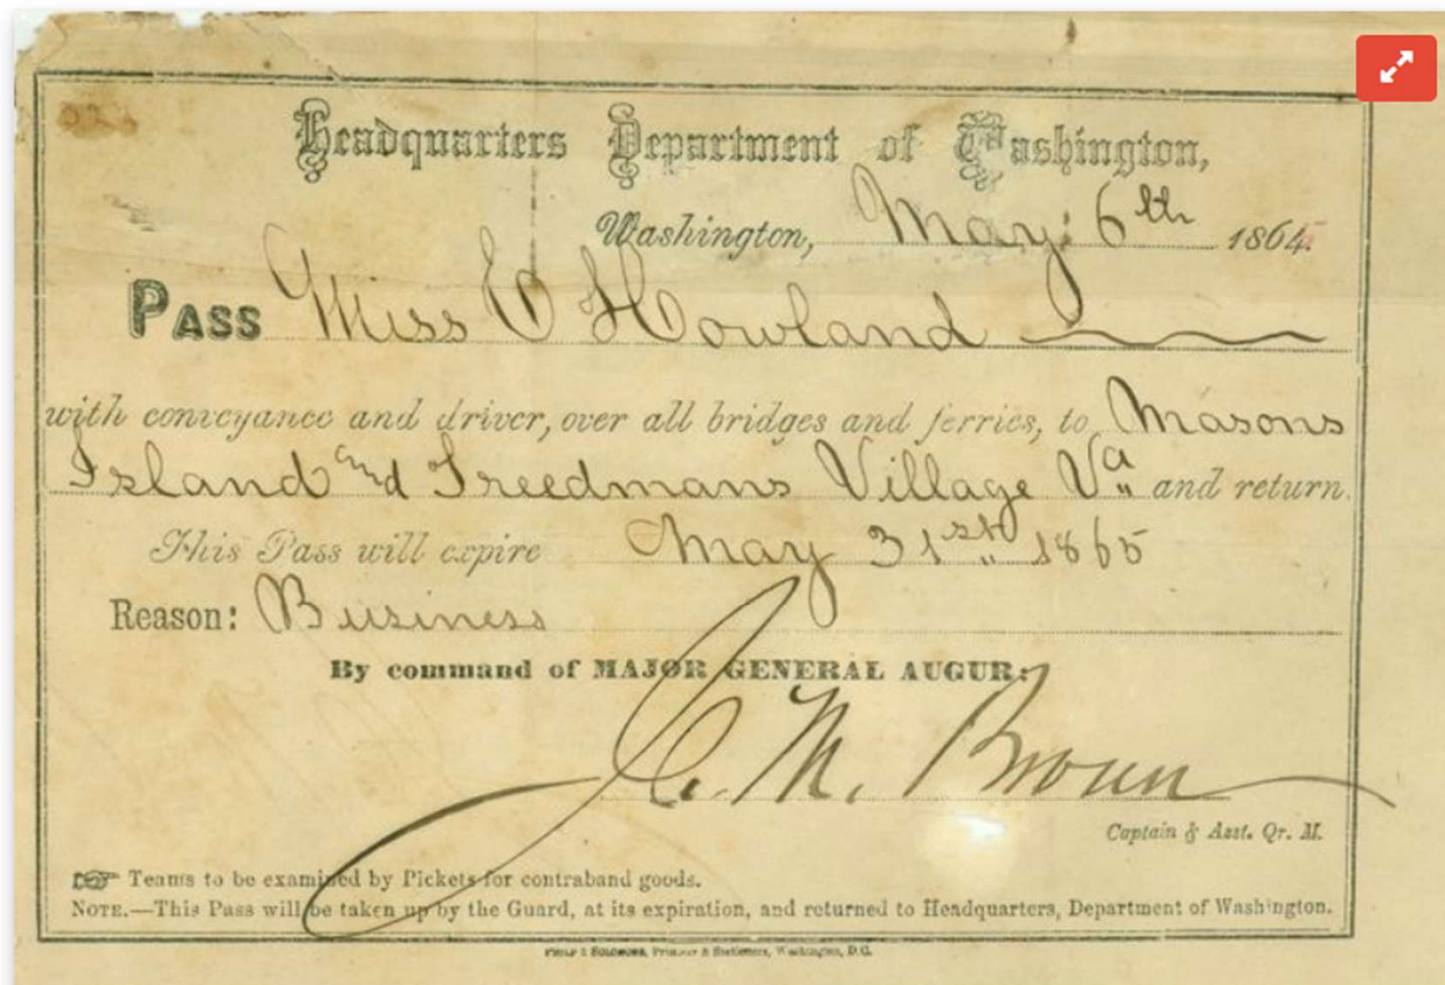 Headquarters Department of Washington,
Washington, May 6th 1865.
PASS Miss E Howland
with conveyance and driver, over all bridges and ferries, to Masons
Island and Freedmans Village Va and return.
This Pass will expire May 31st 1865
Reason: Business
By command of MAJOR GENERAL AUGUR:
C. M. Brown
Captain & Asst. Qr. M.
☞ Teams to be examined by Pickets for contraband goods.
NOTE.—This Pass will be taken up by the Guard, at its expiration, and returned to Headquarters, Department of Washington.
PHILP & SOLOMONS, Printers & Stationers, Washington, D.C.